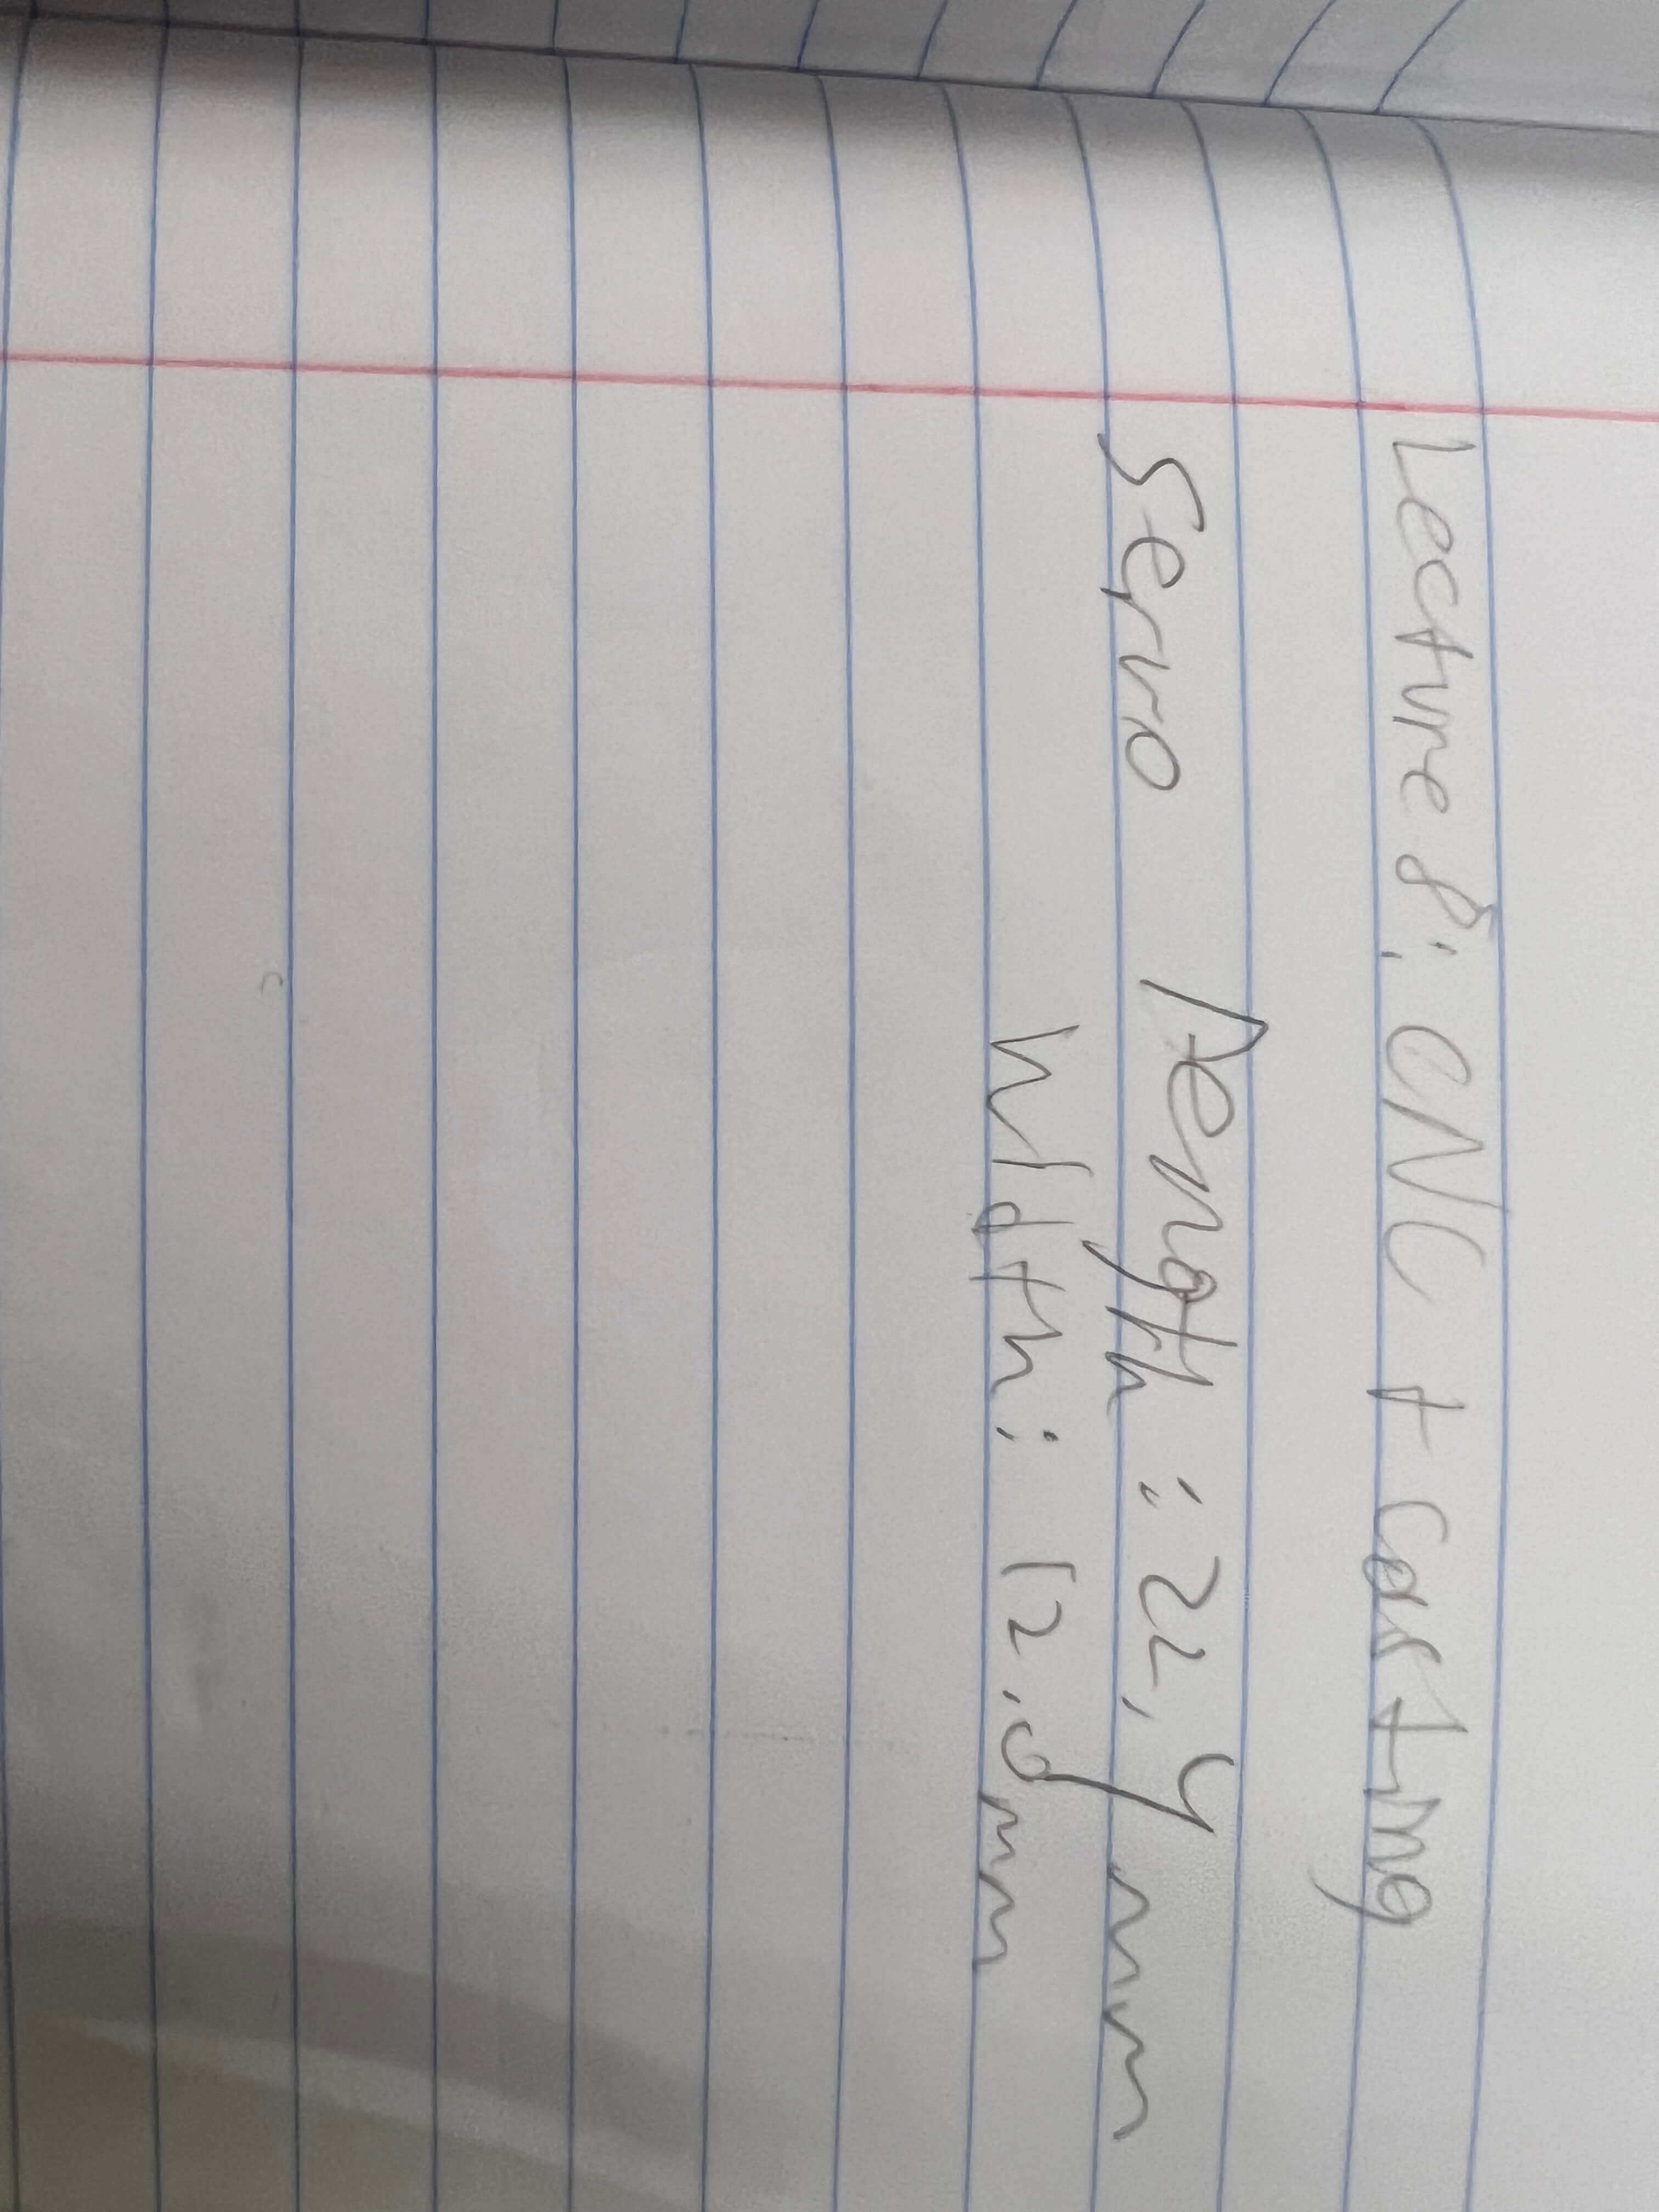 Lecture 8: CNC + Casting
Servo Length : 22.4 mm
Width : 12.0 mm